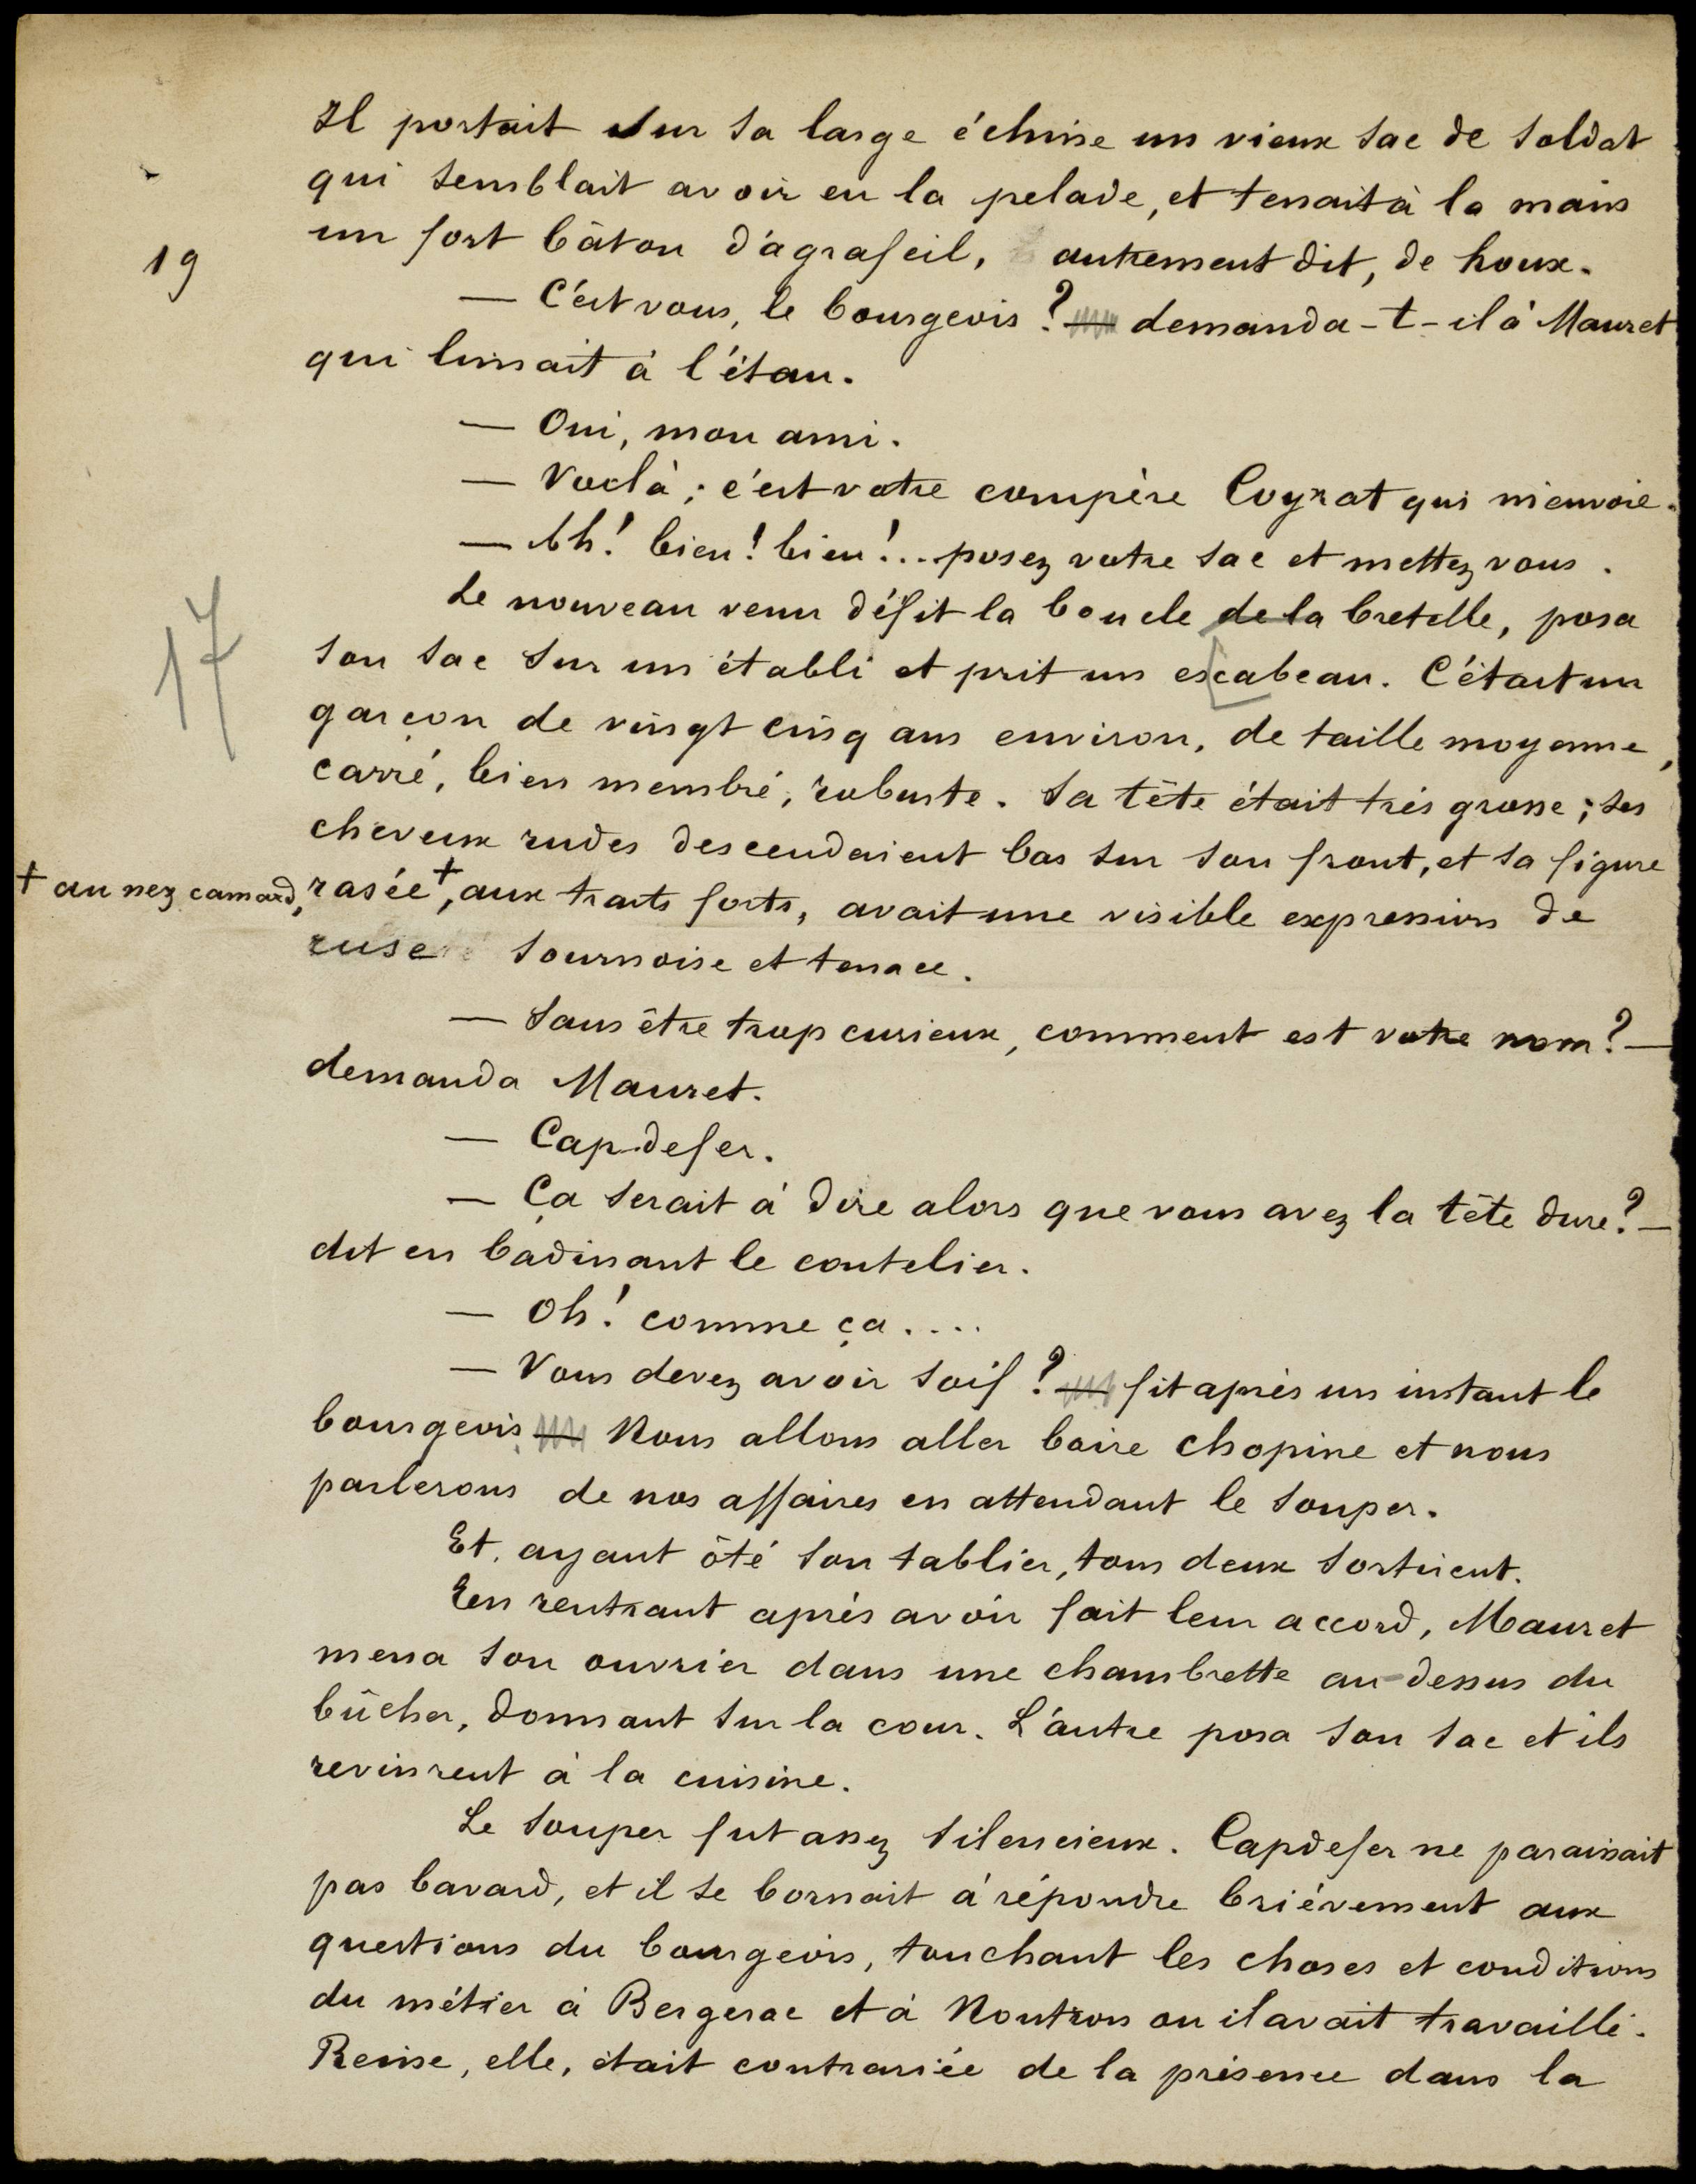 Il portait sur sa large échine un vieux sac de soldat
qui semblait avoir eu la pelade, et tenait à la main
19
un fort bâton d'agrafeil, autrement dit, de houx.
— C'est vous, le bourgeois ? — demanda-t-il à Mauret
qui limait à l'étau.
— Oui, mon ami.
— Voilà ; c'est votre compère Coyrat qui m'envoie.
— Ah ! bien ! bien !... posez votre sac et mettez vous.
Le nouveau venu défit la boucle de la bretelle, posa
17
son sac sur un établi et prit un escabeau. C'était un
garçon de vingt cinq ans environ, de taille moyenne,
carré, bien membré, robuste. Sa tête était très grosse ; ses
cheveux rudes descendaient bas sur son front, et sa figure
+ au nez camard,
rasée+, aux traits forts, avait une visible expression de
ruse sournoise et tenace.
— Sans être trop curieux, comment est votre nom ? —
demanda Mauret.
— Capdefer.
— Ça serait à dire alors que vous avez la tête dure ? —
dit en badinant le coutelier.
— Oh ! comme ça....
— Vous devez avoir soif ? — fit après un instant le
bourgeois. — Nous allons aller boire chopine et nous
parlerons de nos affaires en attendant le souper.
Et, ayant ôté son tablier, tous deux sortirent.
En rentrant après avoir fait leur accord, Mauret
mena son ouvrier dans une chambrette au-dessus du
bûcher, donnant sur la cour. L'autre posa son sac et ils
revinrent à la cuisine.
Le souper fut assez silencieux. Capdefer ne paraissait
pas bavard, et il se bornait à répondre brièvement aux
questions du bourgeois, touchant les choses et conditions
du métier à Bergerac et à Nontron ou il avait travaillé.
Reine, elle, était contrariée de la présence dans la